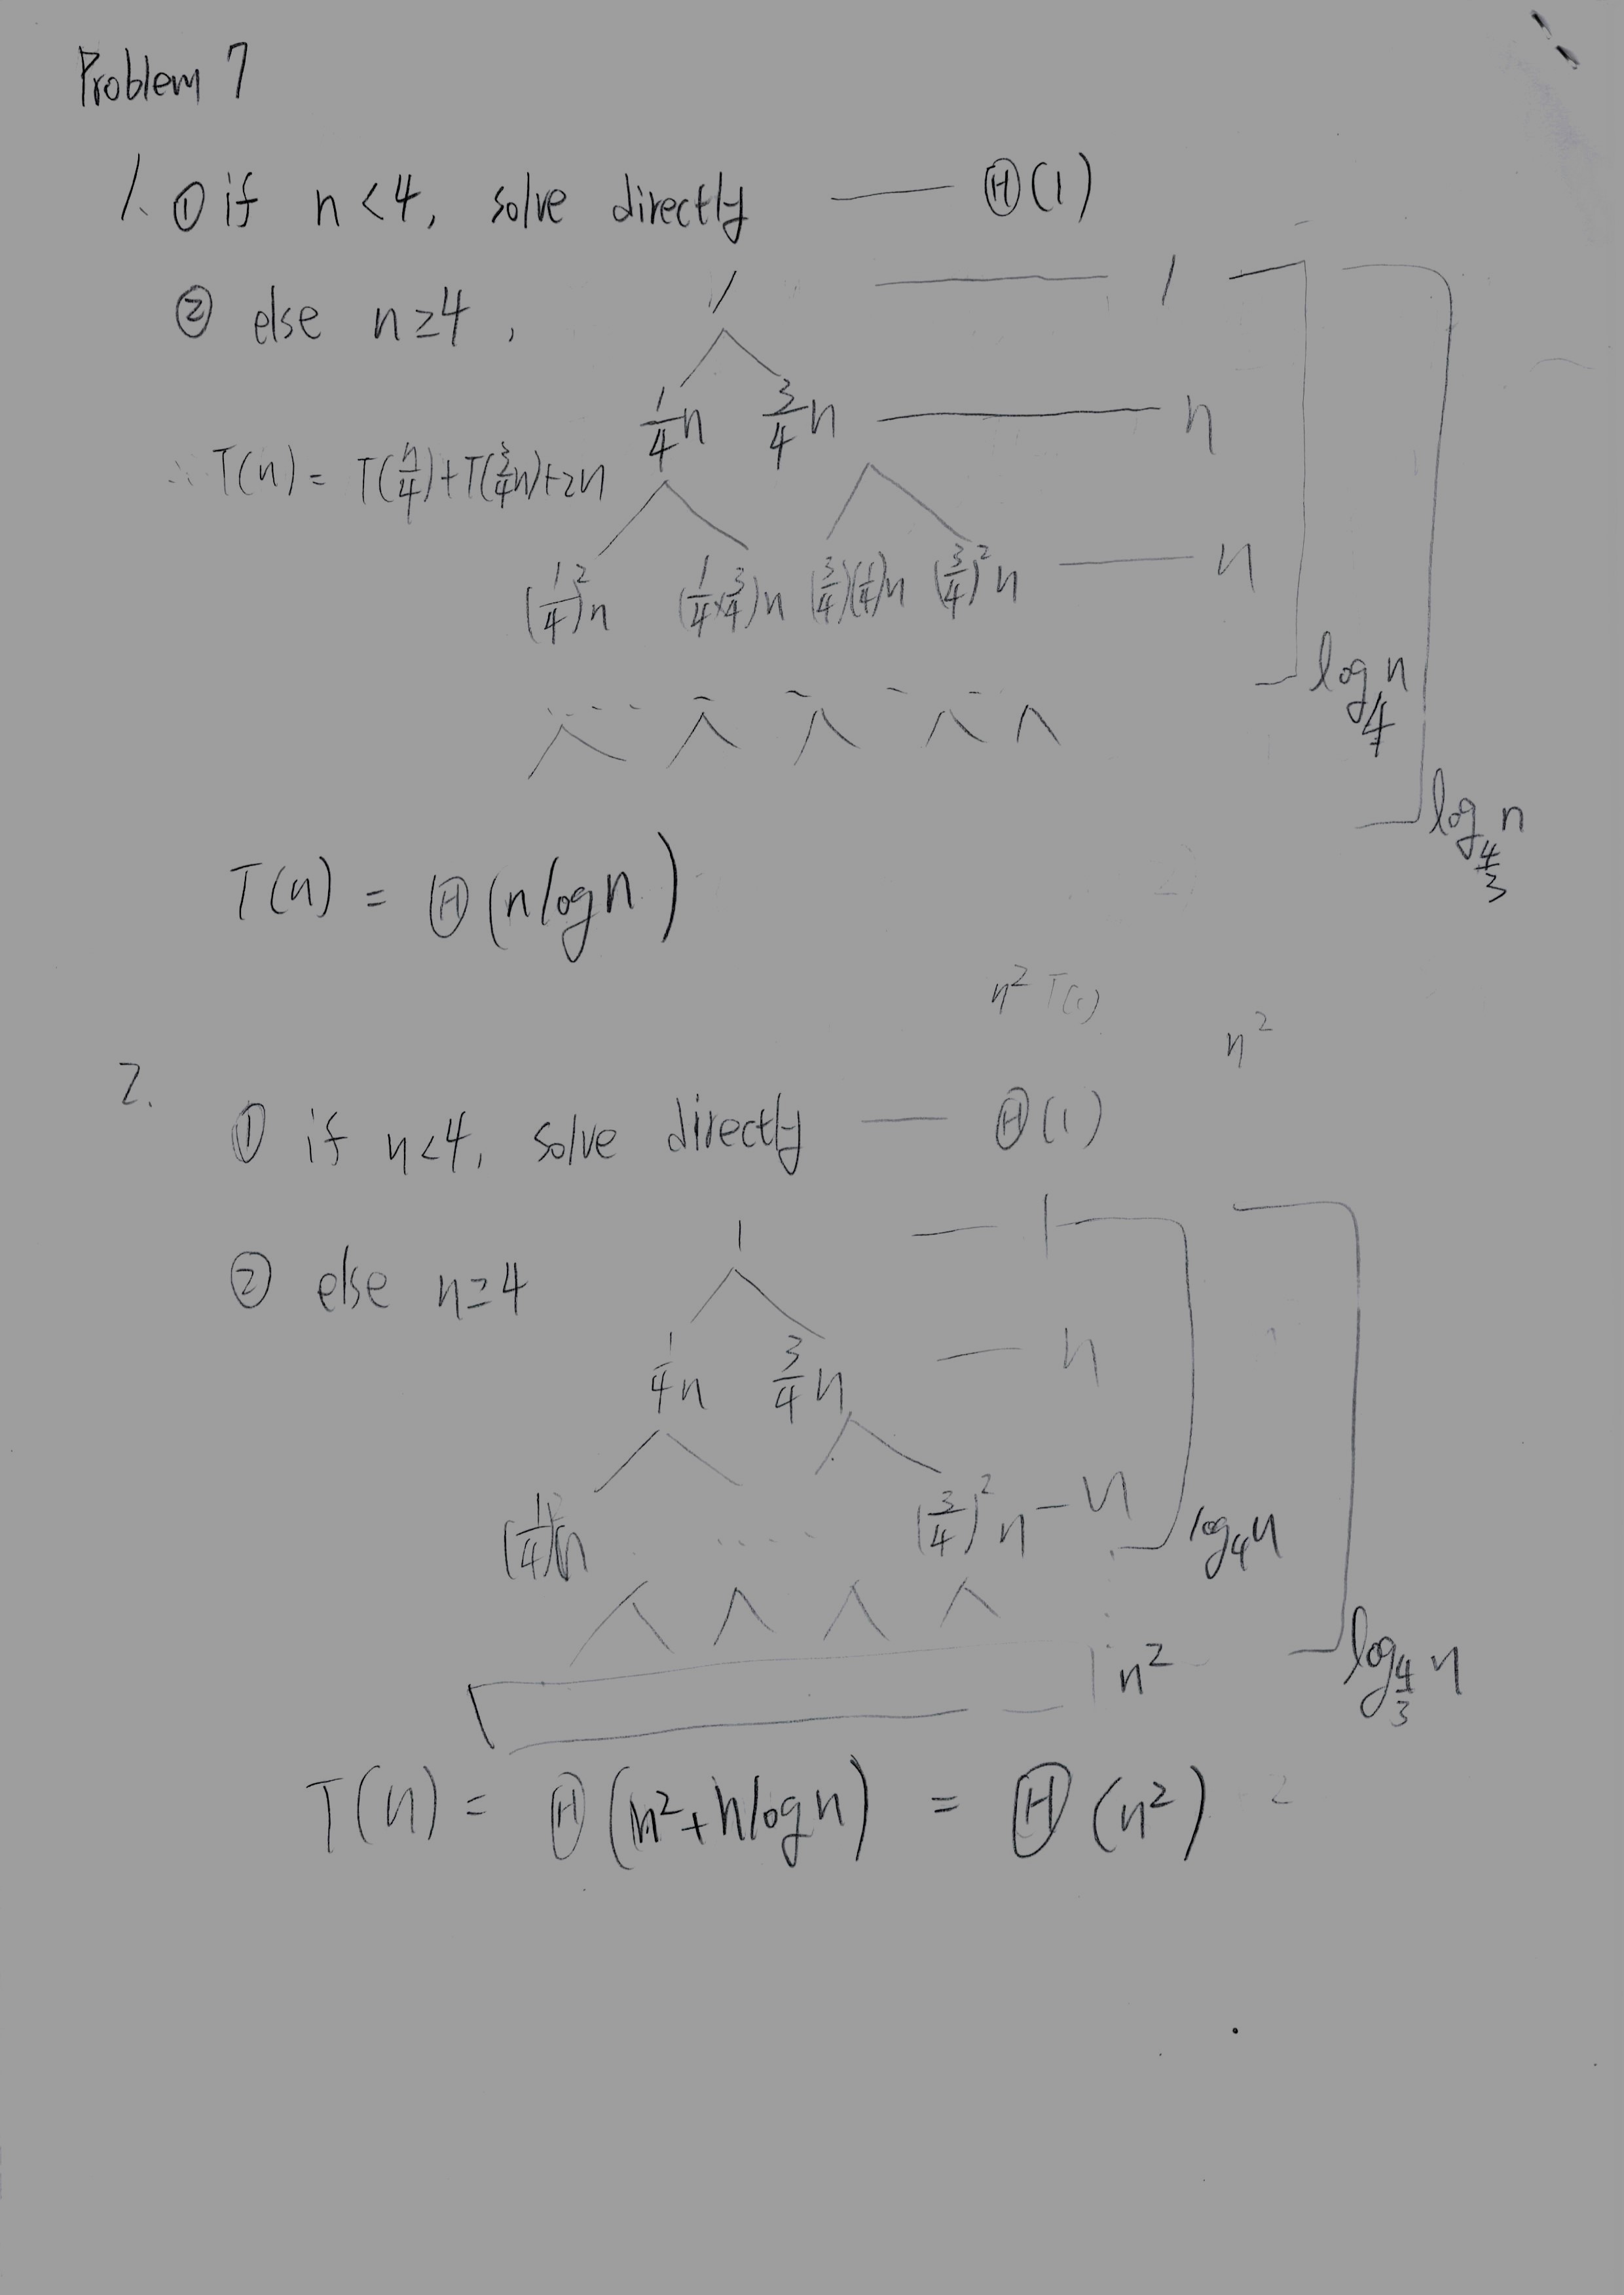 Problem 7
1. ① if n<4, solve directly — Θ(1)
② else n≥4,
1 — 1
1/4 n 3/4 n — n
∴ T(n) = T(n/4)+T(3/4 n)+2n
(1/4)²n (1/4×3/4)n (3/4)(1/4)n (3/4)²n — n
log₄ n
log_{4/3} n
T(n) = Θ(n log n)
n² T(1)
n²
2.
① if n<4, solve directly — Θ(1)
1 — 1
② else n≥4
1/4 n 3/4 n — n
(1/4)²n ..... (3/4)²n — n
log₄ n
n²
log_{4/3} n
T(n) = Θ(n²+n log n) = Θ(n²)